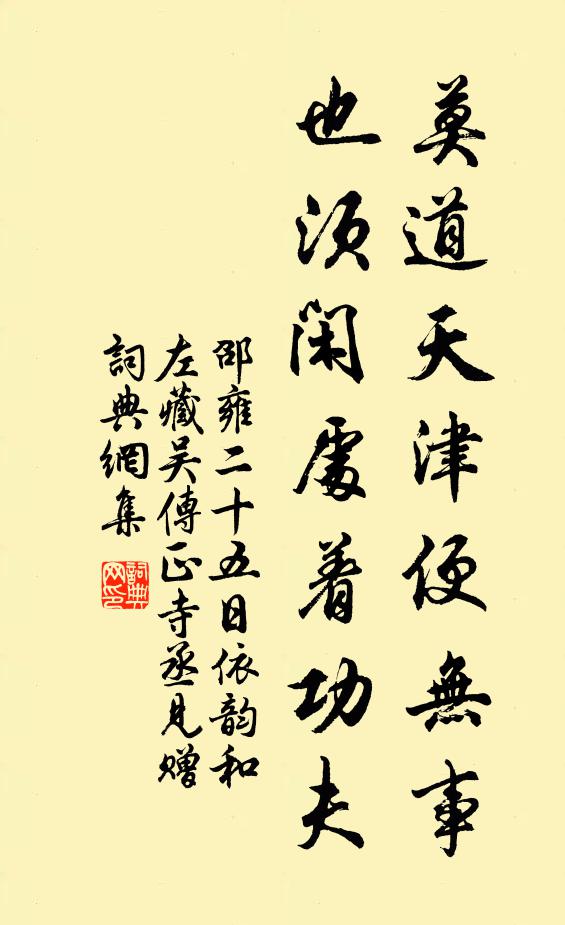 莫道天津便無事
也須閑處着功夫
邵雍二十五日依韵和
左藏吴傳正寺丞見贈
詞典網集
詞典网印